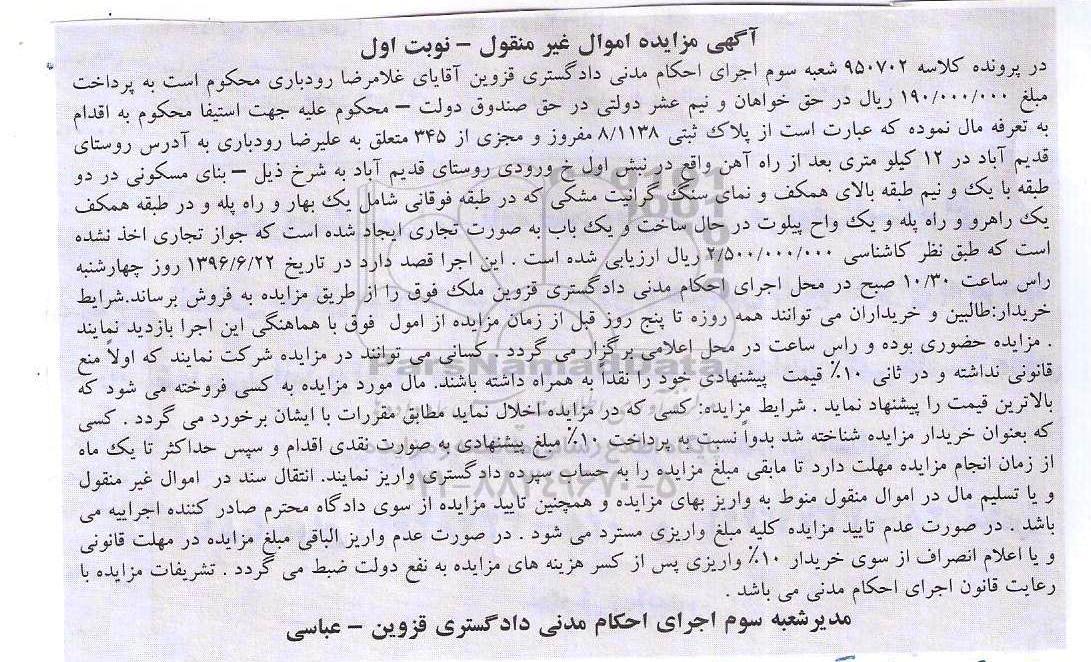 آگهی مزایده اموال غیر منقول – نوبت اول
در پرونده کلاسه ۹۵۰۷۰۲ شعبه سوم اجرای احکام مدنی دادگستری قزوین آقایای غلامرضا رودباری محکوم است به پرداخت
مبلغ ۱۹۰/۰۰۰/۰۰۰ ریال در حق خواهان و نیم عشر دولتی در حق صندوق دولت – محکوم علیه جهت استیفا محکوم به اقدام
به تعرفه مال نموده که عبارت است از پلاک ثبتی ۸/۱۱۳۸ مفروز و مجزی از ۳۴۵ متعلق به علیرضا رودباری به آدرس روستای
قدیم آباد در ۱۲ کیلو متری بعد از راه آهن واقع در نبش اول خ ورودی روستای قدیم آباد به شرخ ذیل – بنای مسکونی در دو
طبقه با یک و نیم طبقه بالای همکف و نمای سنگ گرانیت مشکی که در طبقه فوقانی شامل یک بهار و راه پله و در طبقه همکف
یک راهرو و راه پله و یک واح پیلوت در حال ساخت و یک باب به صورت تجاری ایجاد شده است که جواز تجاری اخذ نشده
است که طبق نظر کاشناسی ۲/۵۰۰/۰۰۰/۰۰۰ ریال ارزیابی شده است . این اجرا قصد دارد در تاریخ ۱۳۹۶/۶/۲۲ روز چهارشنبه
راس ساعت ۱۰/۳۰ صبح در محل اجرای احکام مدنی دادگستری قزوین ملک فوق را از طریق مزایده به فروش برساند.شرایط
خریدار:طالبین و خریداران می توانند همه روزه تا پنج روز قبل از زمان مزایده از امول فوق با هماهنگی این اجرا بازدید نمایند
. مزایده حضوری بوده و راس ساعت در محل اعلامی برگزار می گردد . کسانی می توانند در مزایده شرکت نمایند که اولاً منع
قانونی نداشته و در ثانی ۱۰٪ قیمت پیشنهادی خود را نقداً به همراه داشته باشند. مال مورد مزایده به کسی فروخته می شود که
بالاترین قیمت را پیشنهاد نماید . شرایط مزایده: کسی که در مزایده اخلال نماید مطابق مقررات با ایشان برخورد می گردد . کسی
که بعنوان خریدار مزایده شناخته شد بدواً نسبت به پرداخت ۱۰٪ مبلغ پیشنهادی به صورت نقدی اقدام و سپس حداکثر تا یک ماه
از زمان انجام مزایده مهلت دارد تا مابقی مبلغ مزایده را به حساب سپرده دادگستری واریز نمایند. انتقال سند در اموال غیر منقول
و یا تسلیم مال در اموال منقول منوط به واریز بهای مزایده و همچنین تایید مزایده از سوی دادگاه محترم صادر کننده اجراییه می
باشد . در صورت عدم تایید مزایده کلیه مبلغ واریزی مسترد می شود . در صورت عدم واریز الباقی مبلغ مزایده در مهلت قانونی
و یا اعلام انصراف از سوی خریدار ۱۰٪ واریزی پس از کسر هزینه های مزایده به نفع دولت ضبط می گردد . تشریفات مزایده با
رعایت قانون اجرای احکام مدنی می باشد .
مدیرشعبه سوم اجرای احکام مدنی دادگستری قزوین – عباسی
ParsNamadData
۰۲۱-۸۸۳۴۹۶۷۰-۵